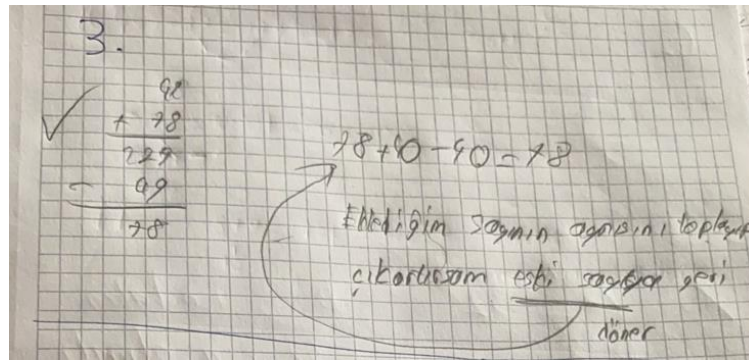 3.
92
+ 78
229
- 99
78
78+40-40=78
Eklediğim sayının aynısını toplayıp
çıkartırsam eski sayıya geri
döner